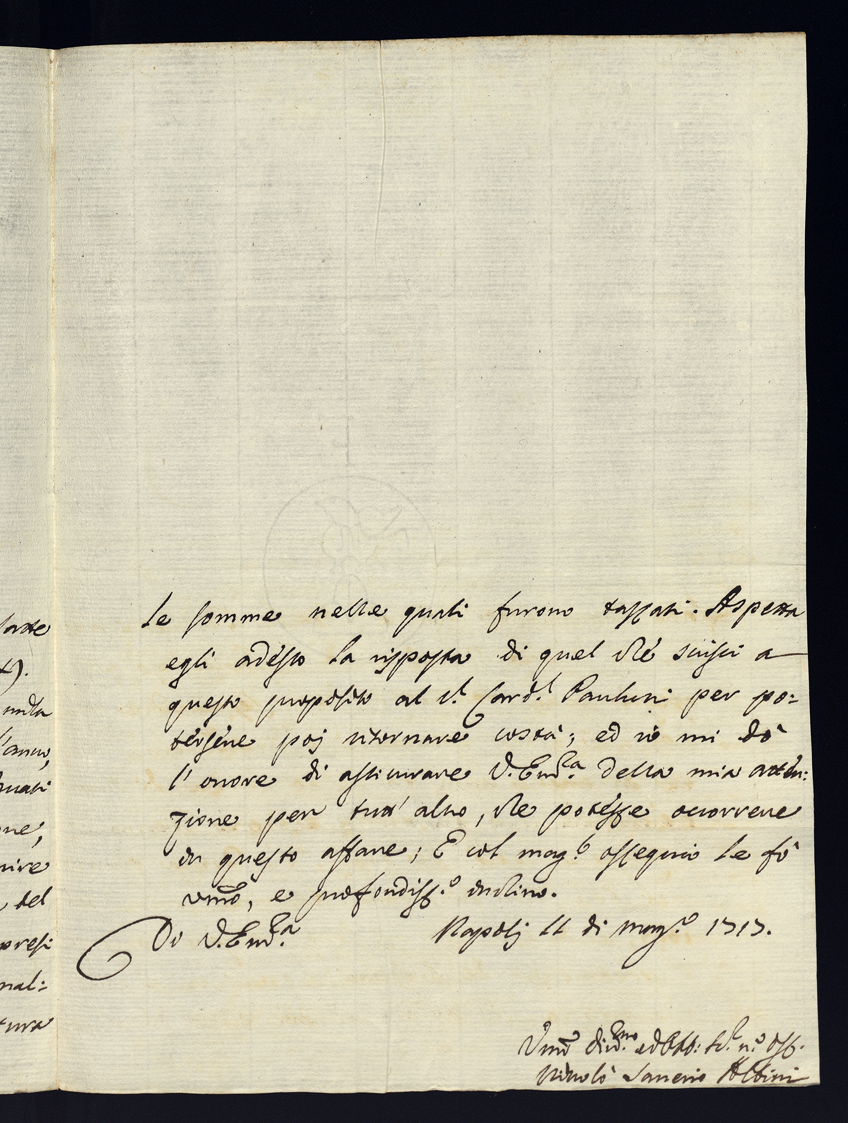 Le somme nelle quali furono tassati. Aspetta
egli adesso la risposta di quel che scrissi a
questo proposito al S.r Card.l Paulucci per po=
tersene poi ritornare costà; ed io mi dò
l'onore di assicurare V. Em.za della mia atten=
zione per tutt'altro, che potesse occorrere
in questo affare; E col magg.e ossequio le fò
umo, e profondiss.o inchino.
Di V. Em.za Napoli 11 di magg.o 1717.
Umo div.mo ed Obb: ser. oss.
Nicolò Saverio Albini
sorte
molta
l'anno,
quati
one,
nire
, del
presi
nal=
tura